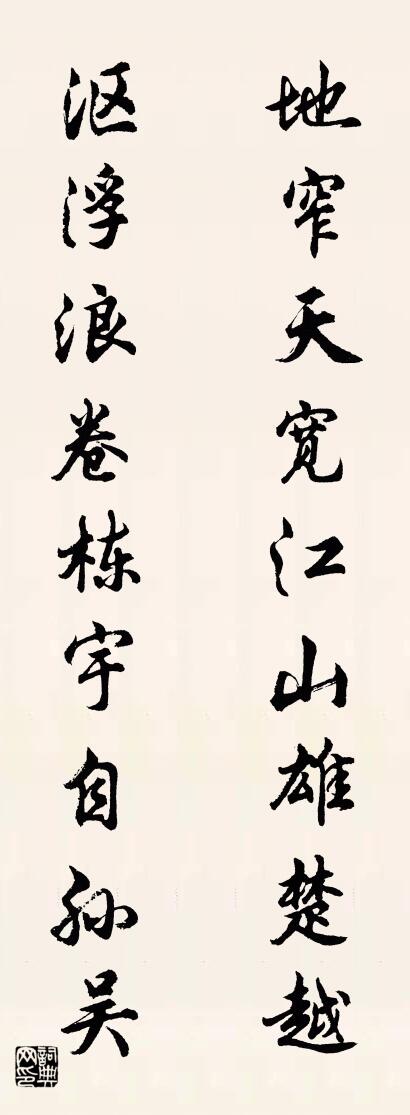 地窄天宽江山雄楚越
沤浮浪卷栋宇自孙吴
词典网印